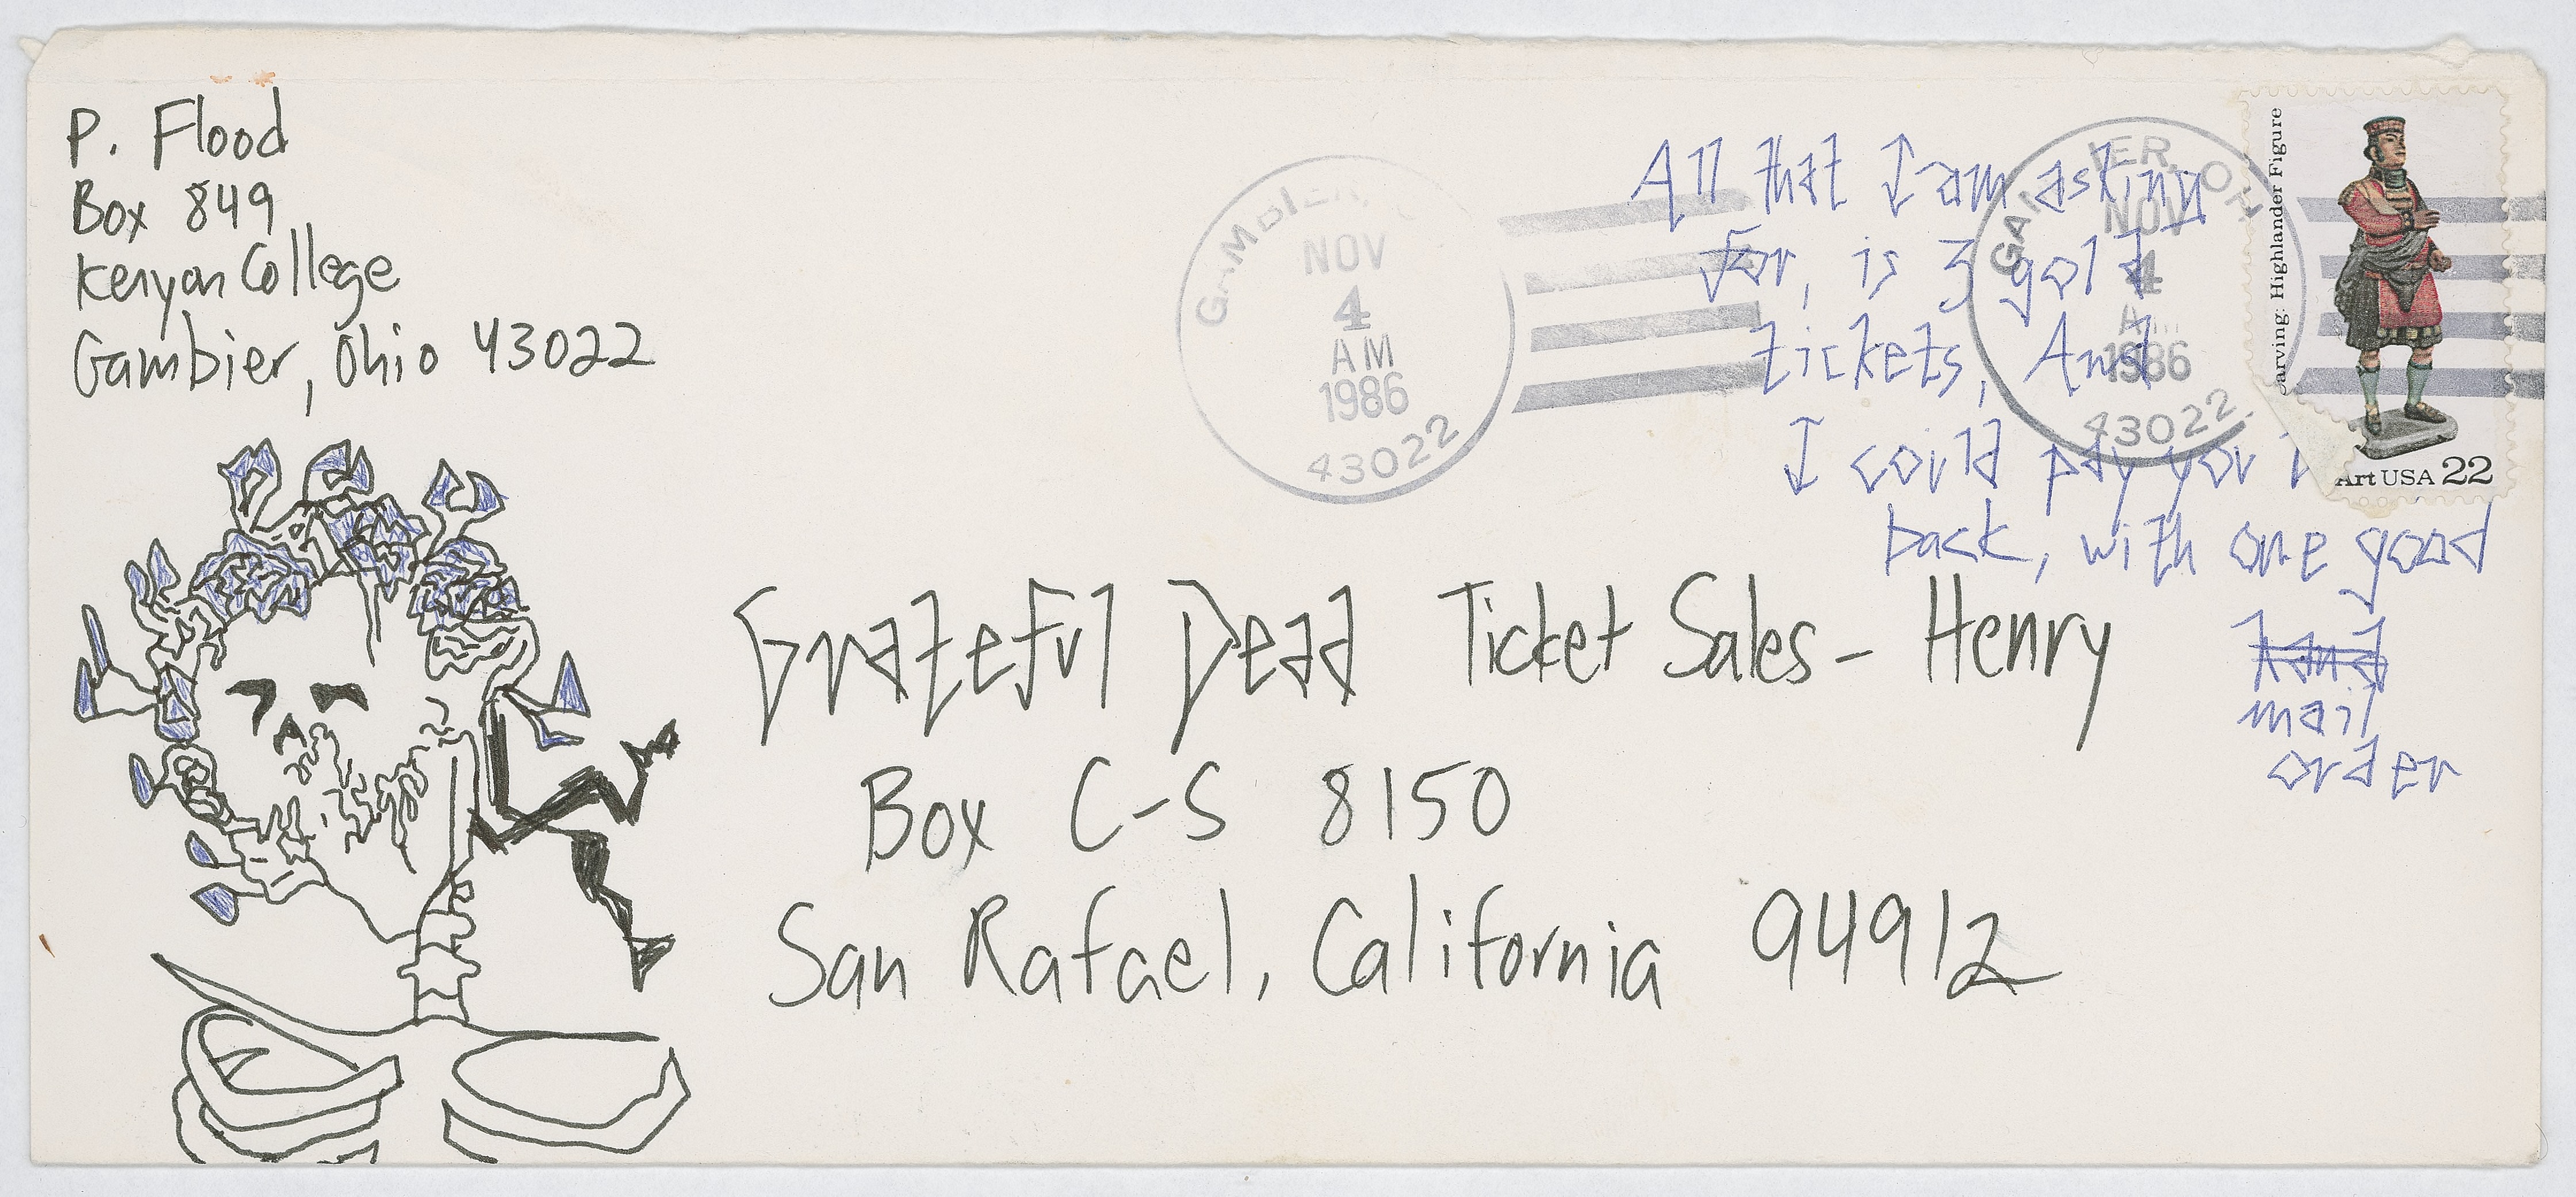 P. Flood
Box 849
Kenyon College
Gambier, Ohio 43022
GAMBIER,
NOV
4
AM
1986
43022
OH
NOV
4
1986
43022
arving: Highlander Figure
Art USA 22
All that I am asking
for, is 3 gold
tickets, And
I could pay you
back, with one good
hand
mail
order
Grateful Dead Ticket Sales - Henry
Box C-S 8150
San Rafael, California 94912